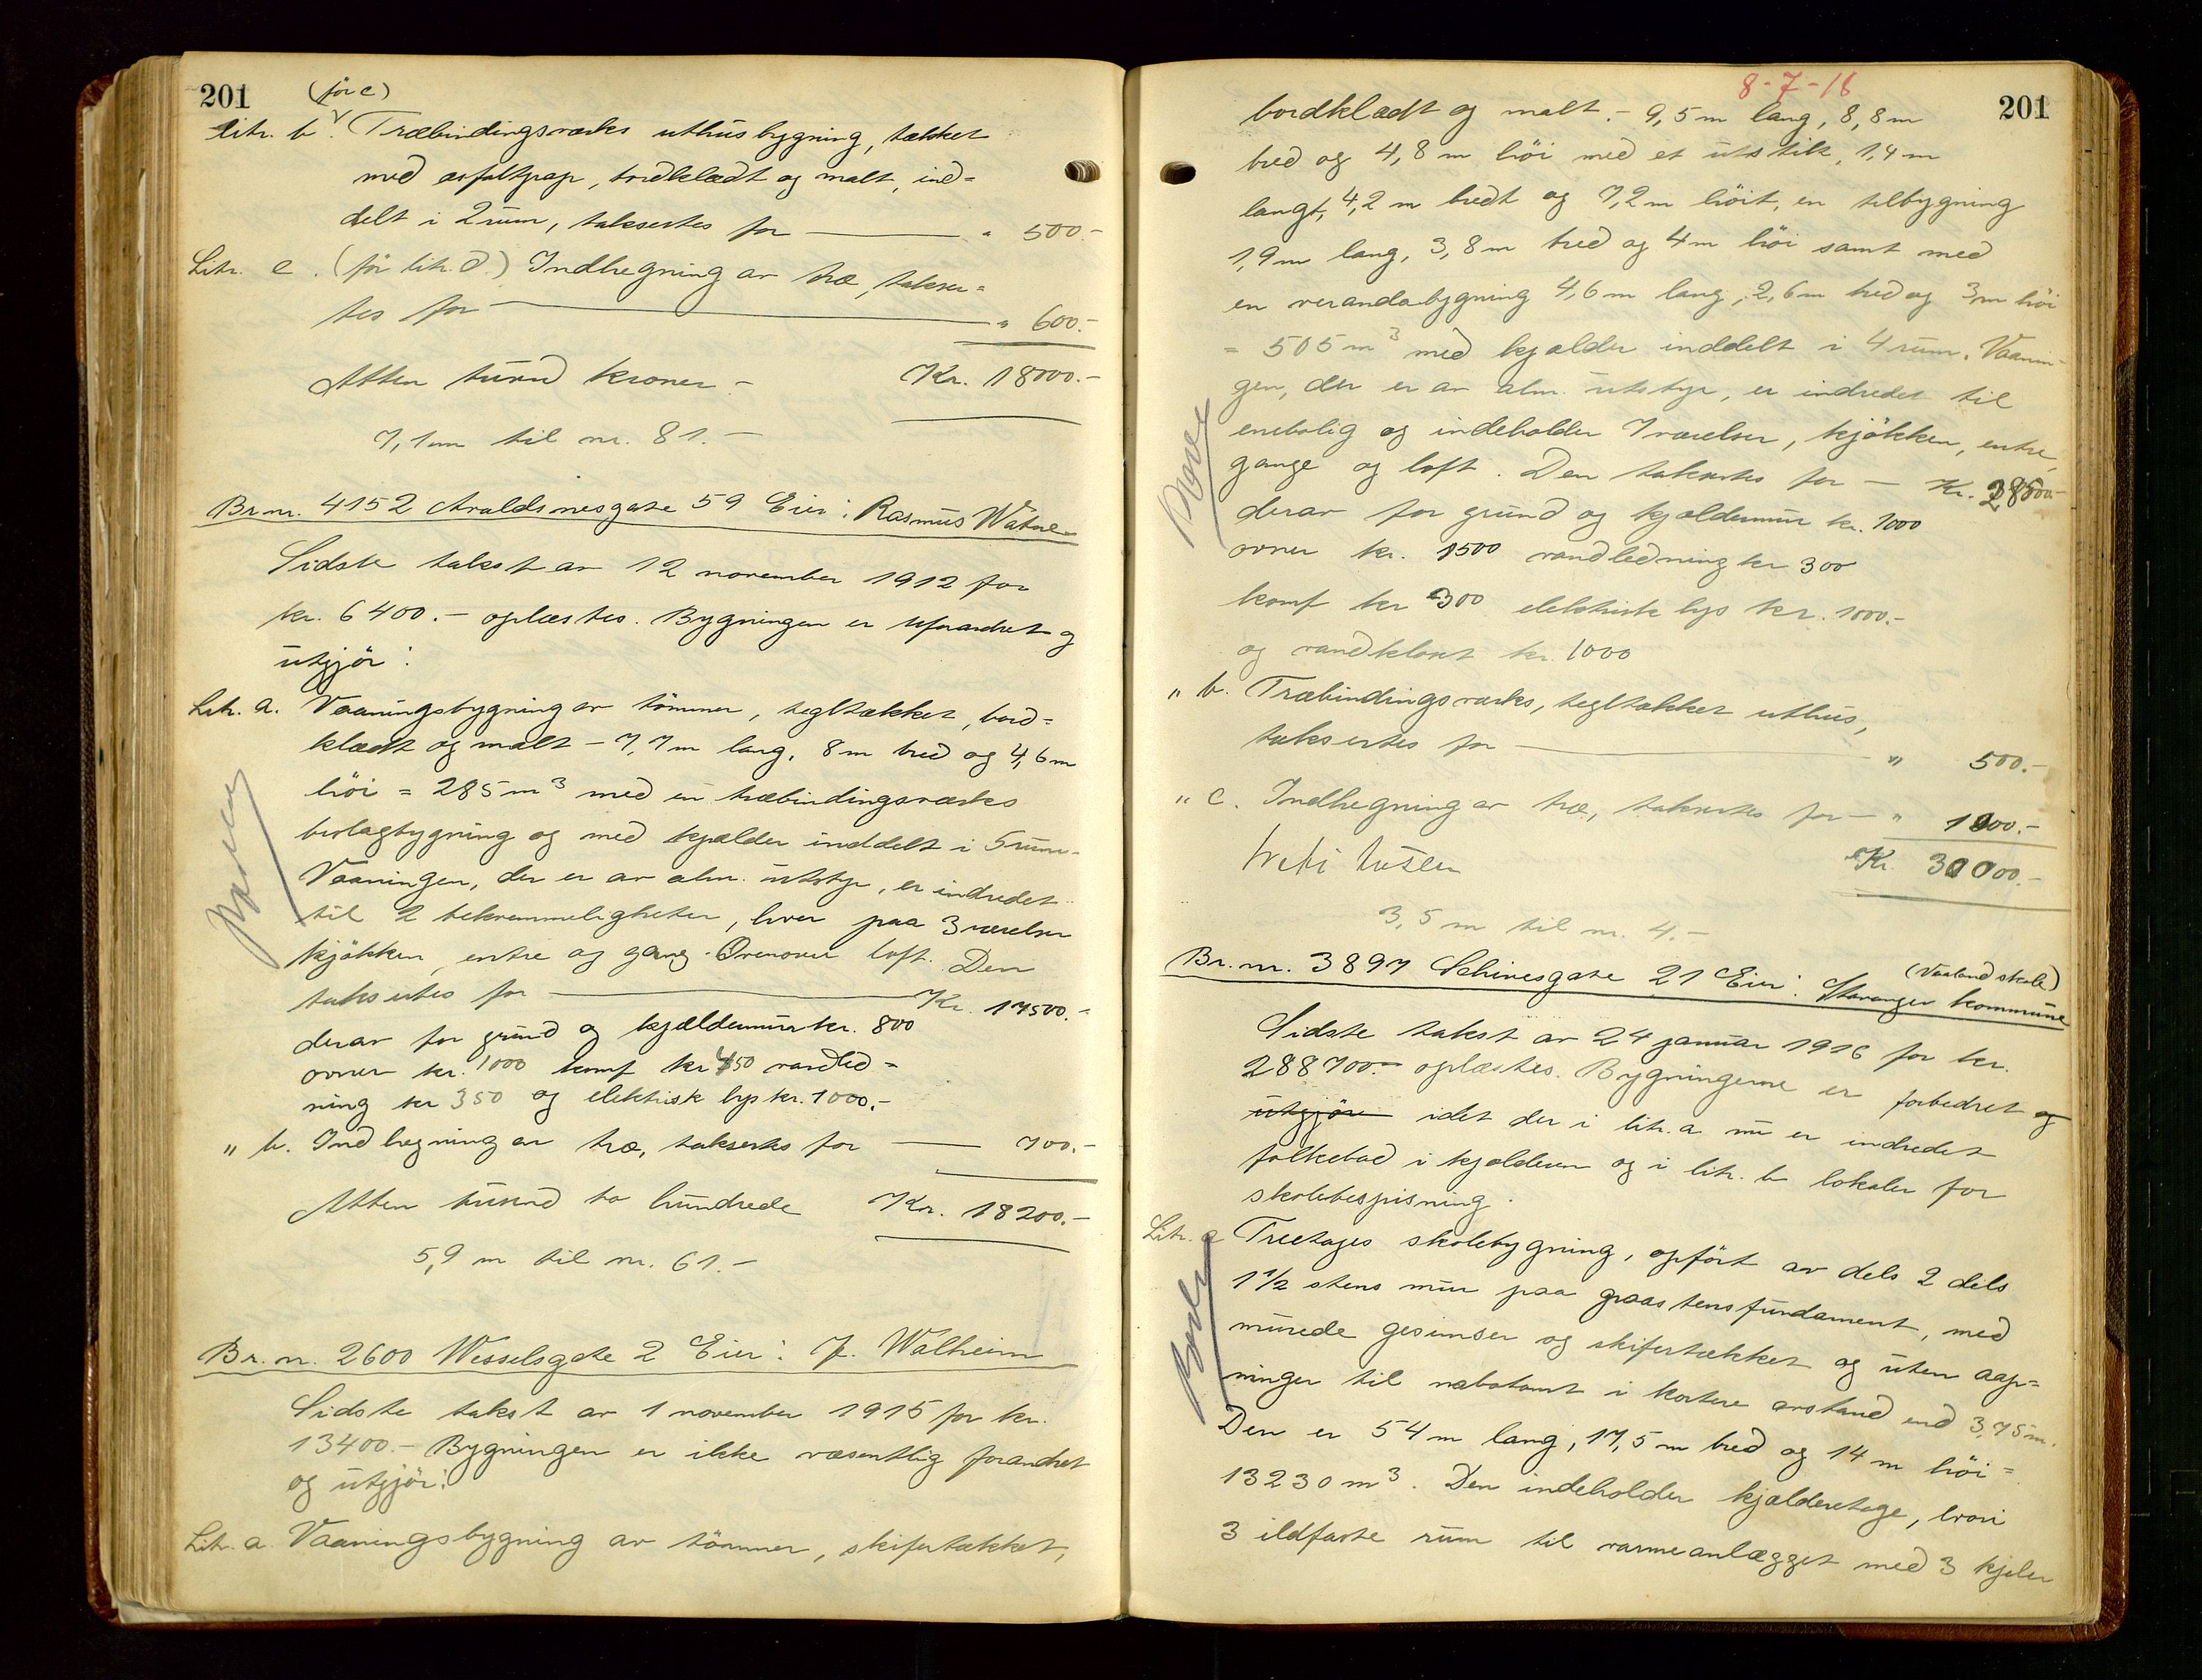 201
(för c)
Litr. b. Træbindingsværks uthusbygning, tækket
med asfaltpap, bordklædt og malt, ind=
delt i 2 rum, taksertes for — " 500.-
Litr. e. (för litr. d.) Indhegning av træ, takser=
tes for — " 600.-
Atten tusind kroner - Kr. 18000.-
7,1 m til nr. 81.-
Br.nr. 4152 Avaldsnesgate 59 Eier: Rasmus Watne
Sidste takst av 12 november 1912 for
kr. 6400.- oplæstes. Bygningen er uforandret og
utgjör:
Litr. a. Vaaningsbygning av tömmer, tegltækket, bord=
klædt og malt - 7,7 m lang, 8 m bred og 4,6 m
höi = 285 m³ med en træbindingsværks
bislagbygning og med kjælder inddelt i 5 rum.
Vaaningen, der er av alm. utstyr, er indredet
til 2 bekvemmeligheter, hver paa 3 værelser
kjökken, entre og gang. Ovenover loft. Den
taksertes for — Kr. 17500.-
derav for grund og kjældermur kr. 800
ovner kr. 1000 komf kr 450 vandled=
ning kr 350 og elektrisk lys kr. 1000.-
" b. Indhegning av træ, taksertes for — 700.-
Atten tusind to hundrede Kr. 18200.-
5,9 m til nr. 61.-
Br. nr. 2600 Wesselsgate 2 Eier: J. Walheim
Sidste takst av 1 november 1915 for kr.
13400.- Bygningen er ikke væsentlig forandret
og utgjör:
Litr. a. Vaaningsbygning av tömmer, skifertækket,
8-7-18
201
bordklædt og malt.- 9,5 m lang, 8,8 m
bred og 4,8 m höi med et utstik, 1,4 m
langt, 4,2 m bredt og 7,2 m höit, en tilbygning
1,9 m lang, 3,8 m bred og 4 m höi samt med
en verandabygning 4,6 m lang, 2,6 m bred og 3 m höi
= 505 m³ med kjælder inddelt i 4 rum. Vaanin-
gen, der er av alm. utstyr, er indredet til
enebolig og indeholder 7 værelser, kjökken, entre,
gange og loft. Den taksertes for - Kr. 28500.-
derav for grund og kjældermur kr. 1000
ovner kr. 1500 vandledning kr 300
komf kr 300 elektrisk lys kr. 1000.-
og vandklosét kr. 1000
" b. Træbindingsværks, tegltækket uthus,
taksertes for — " 500.-
" c. Indhegning av træ, taksertes for - " 1000.-
Treti tusen Kr. 30000.-
3,5 m til nr. 4.-
Br. nr. 3897 Schivesgate 21 Eier: Stavanger kommune
(Vaaland skole)
Sidste takst av 24 januar 1916 for kr.
288700.- oplæstes. Bygningerne er forbedret og
utgjöre idet der i litr. a nu er indredet
folkebad i kjælderen og i litr. b lokaler for
skolebespisning.
Litr. a Treetages skolebygning, opfört av dels 2 dels
1 1/2 stens mur paa graastensfundament, med
murede gesimser og skifertækket og uten aap=
ninger til nabotomt i kortere avstand end 3,75 m.
Den er 54 m lang, 17,5 m bred og 14 m höi =
13230 m³. Den indeholder kjælderetage, hvori
3 ildfaste rum til varmeanlægget med 3 kjeler